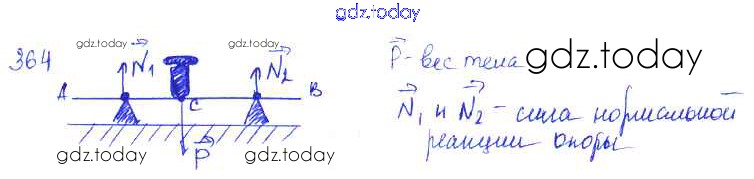 gdz.today
364
gdz.today
N₁
gdz.today
N₂
A
C
B
gdz.today
P
gdz.today
P - вес тела
gdz.today
N₁ и N₂ - сила нормальной
реакции опоры